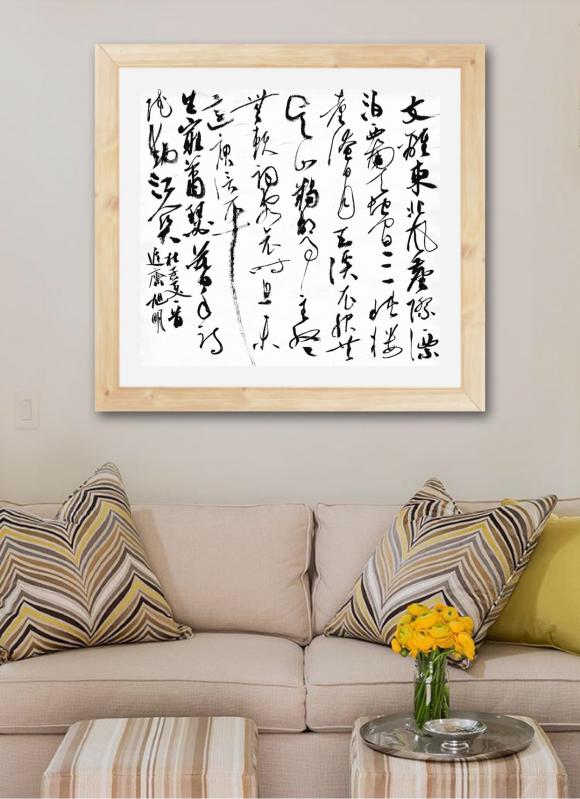 支離東北風塵際漂
泊西南天地間三峽樓
臺淹日月五溪衣服共
雲山羯胡事主終
無賴詞客哀時且未
還庾信平
生最蕭瑟暮年詩
賦動江關
旭明